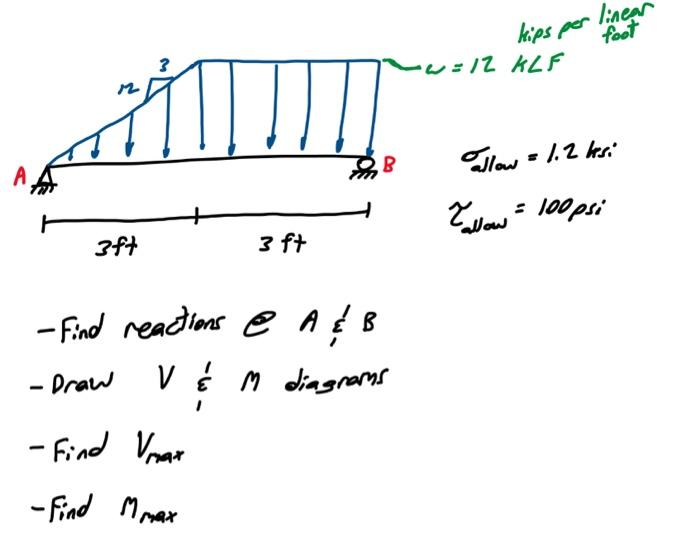 kips per linear
foot
w = 12 KLF
3
12
A
B
σallow = 1.2 ksi
τallow = 100psi
3ft
3 ft
- Find reactions @ A & B
- Draw V & M diagrams
- Find Vmax
- Find Mmax